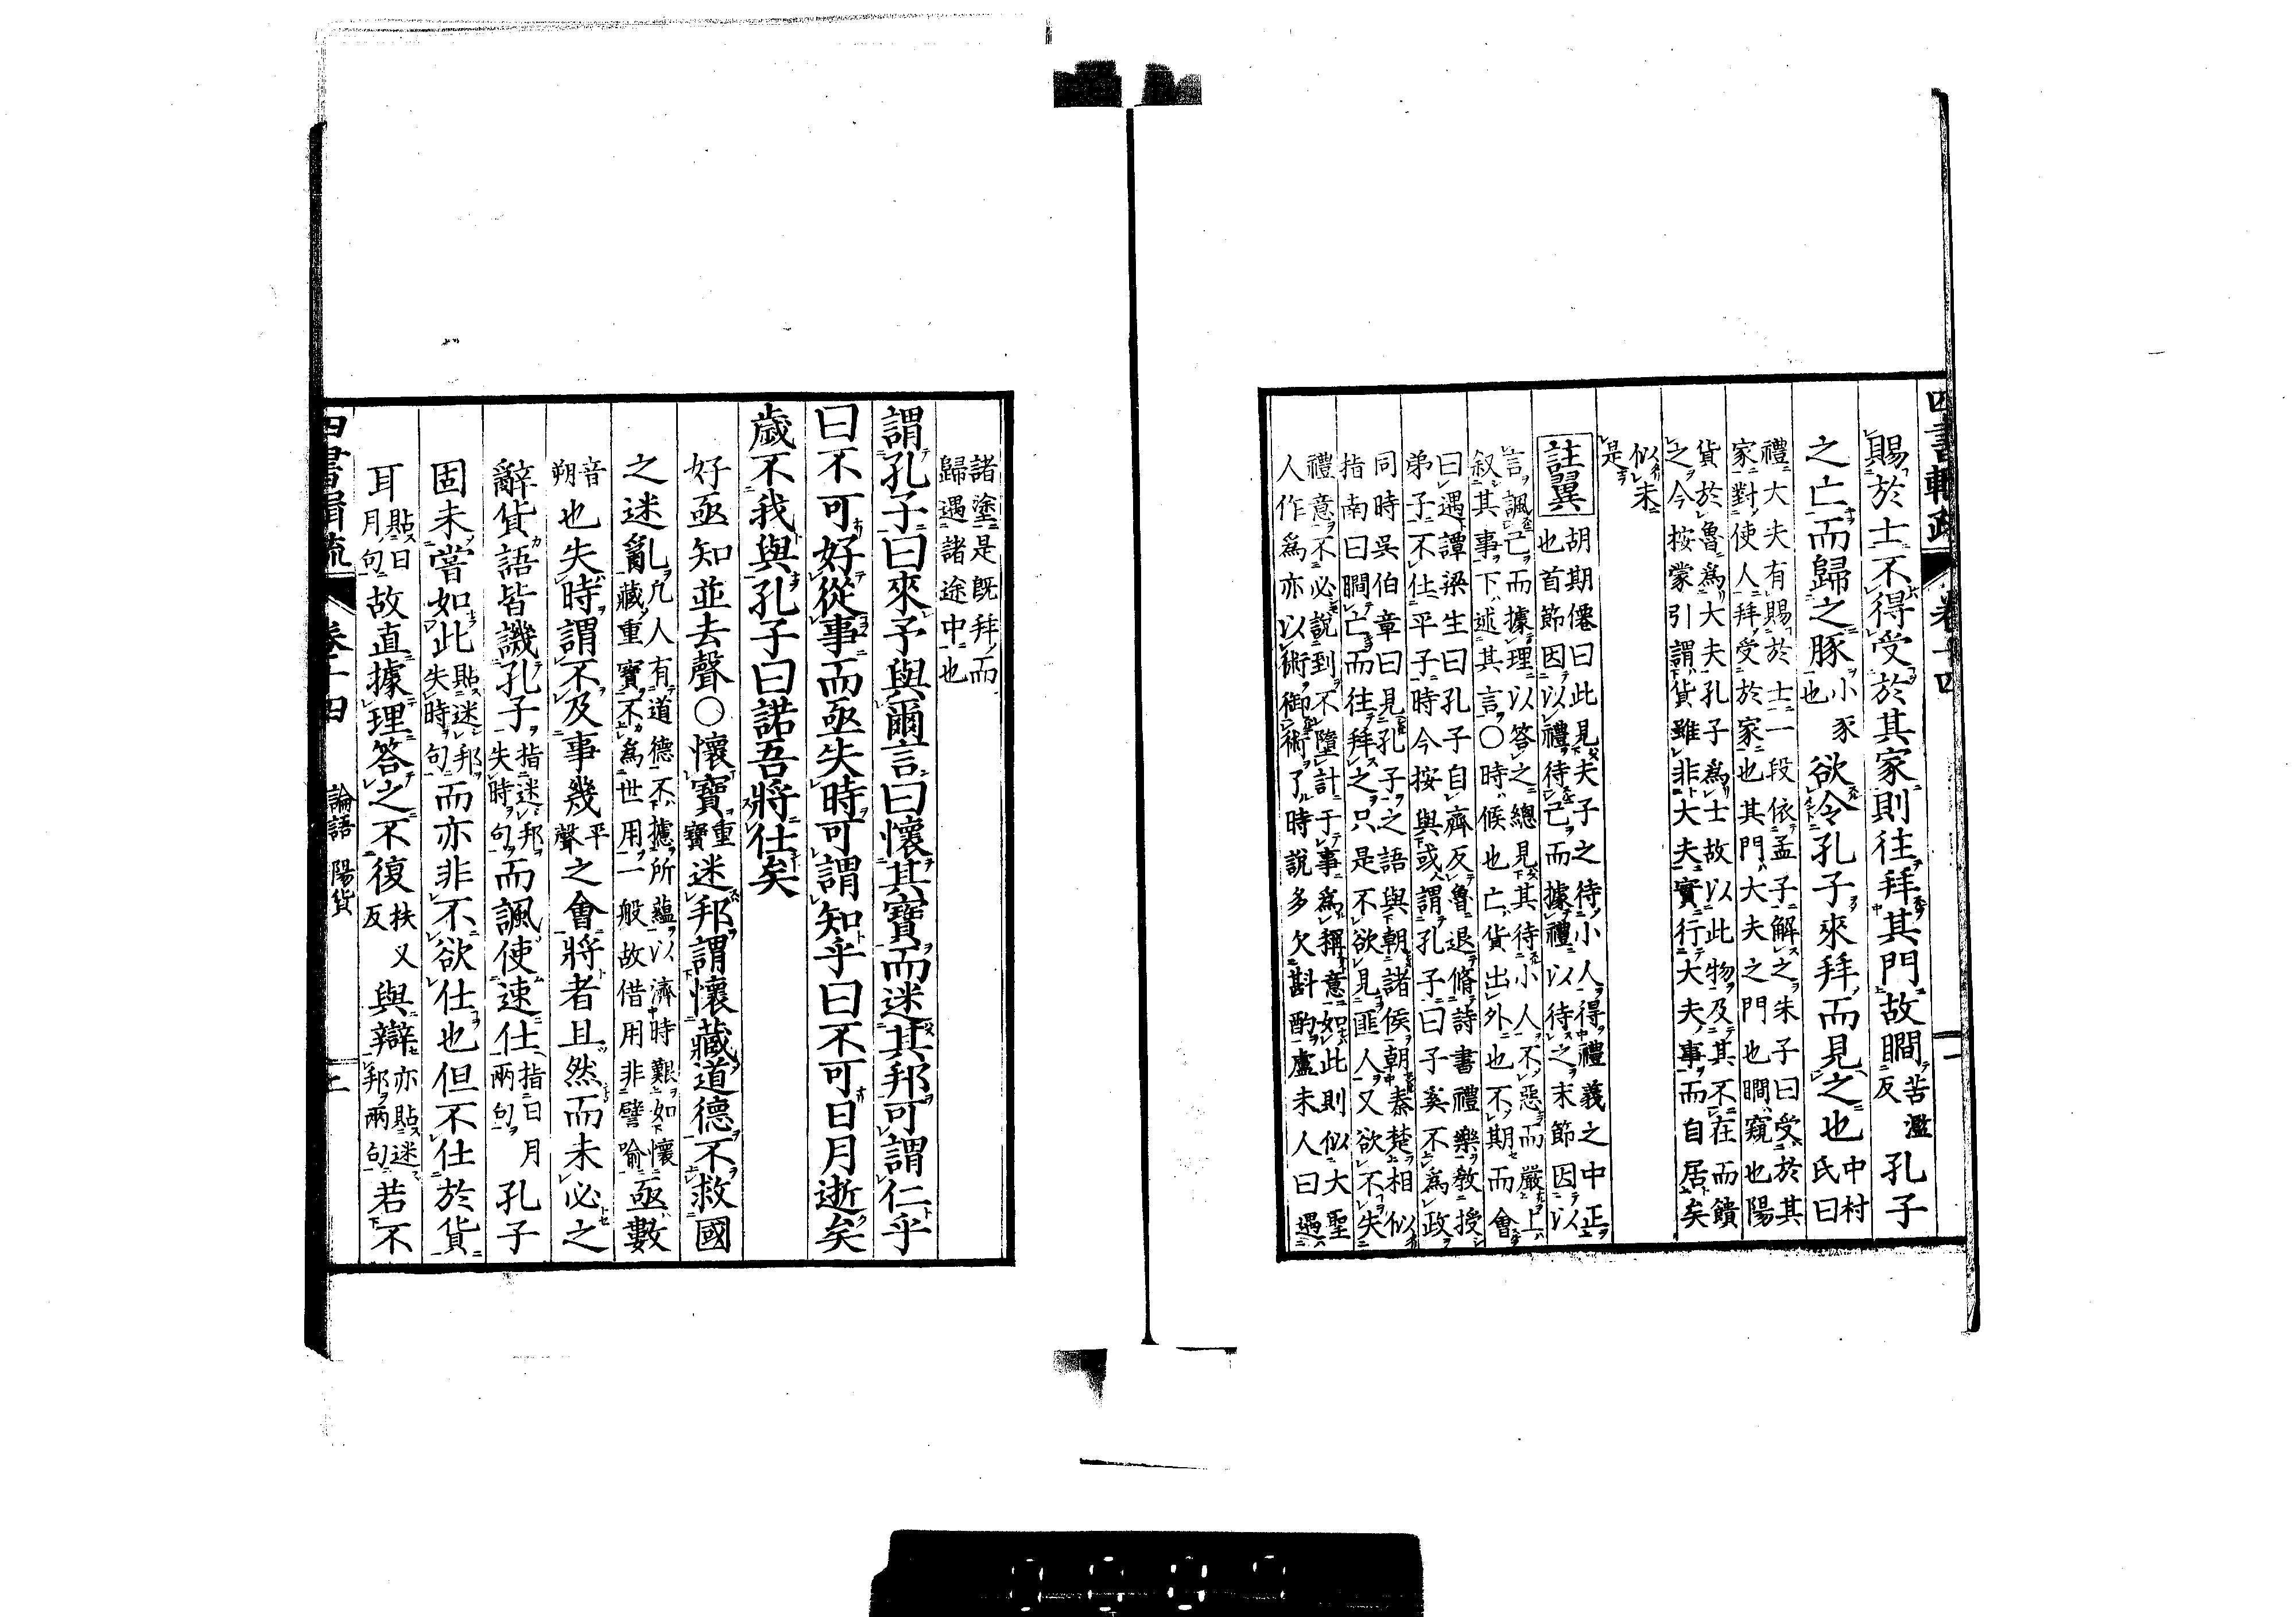 四書輯疏 卷十四
賜於士不得受於其家則往拜其門故瞷苦濫反孔子
之亡而歸之豚小豕也欲令孔子來拜而見之也中村氏曰
禮大夫有賜於士一段依孟子解之朱子曰受於其
家對使人拜受於家也其門大夫之門也瞷窺也陽
貨於魯爲大夫孔子爲士故以此物及其不在而饋
之今按蒙引謂貨雖非大夫實行大夫事而自居矣
似未
是
註翼
胡期僊曰此見夫子之待小人得禮義之中正
也首節因以禮待己而據禮以待之末節因以
言諷己而據理以答之總見其待小人不惡而嚴上
叙其事下述其言○時候也亡貨出外也不期而會
曰遇譚梁生曰孔子自齊反魯退脩詩書禮樂敎授
弟子不仕平子時今按與或謂孔子曰子奚不爲政
同時吳伯章曰見孔子之語與朝諸侯朝秦楚相似
指南曰瞷亡而往拜之只是不欲見匪人又欲不失
禮意不必說到不墮計于事爲稱意如此則似大聖
人作爲亦以術御術了時說多欠斟酌盧未人曰遇
諸塗是旣拜而
歸遇諸途中也
謂孔子曰來予與爾言曰懷其寶而迷其邦可謂仁乎
曰不可好從事而亟失時可謂知乎曰不可日月逝矣
歲不我與孔子曰諾吾將仕矣
好亟知並去聲○懷寶重寶迷邦謂懷藏道德不救國
之迷亂凡人有道德不攄所蘊以濟時艱如懷藏重寶不爲世用一般故借用非譬喻亟數
音朔也失時謂不及事幾平聲之會將者且然而未必之
辭貨語皆譏孔子指迷邦失時句而諷使速仕指日月兩句孔子
固未嘗如此貼迷邦失時句而亦非不欲仕也但不仕於貨
耳貼日月句故直據理答之不復扶又反與辯亦貼迷邦兩句若不
四書輯疏 卷十四 論語 陽貨 二